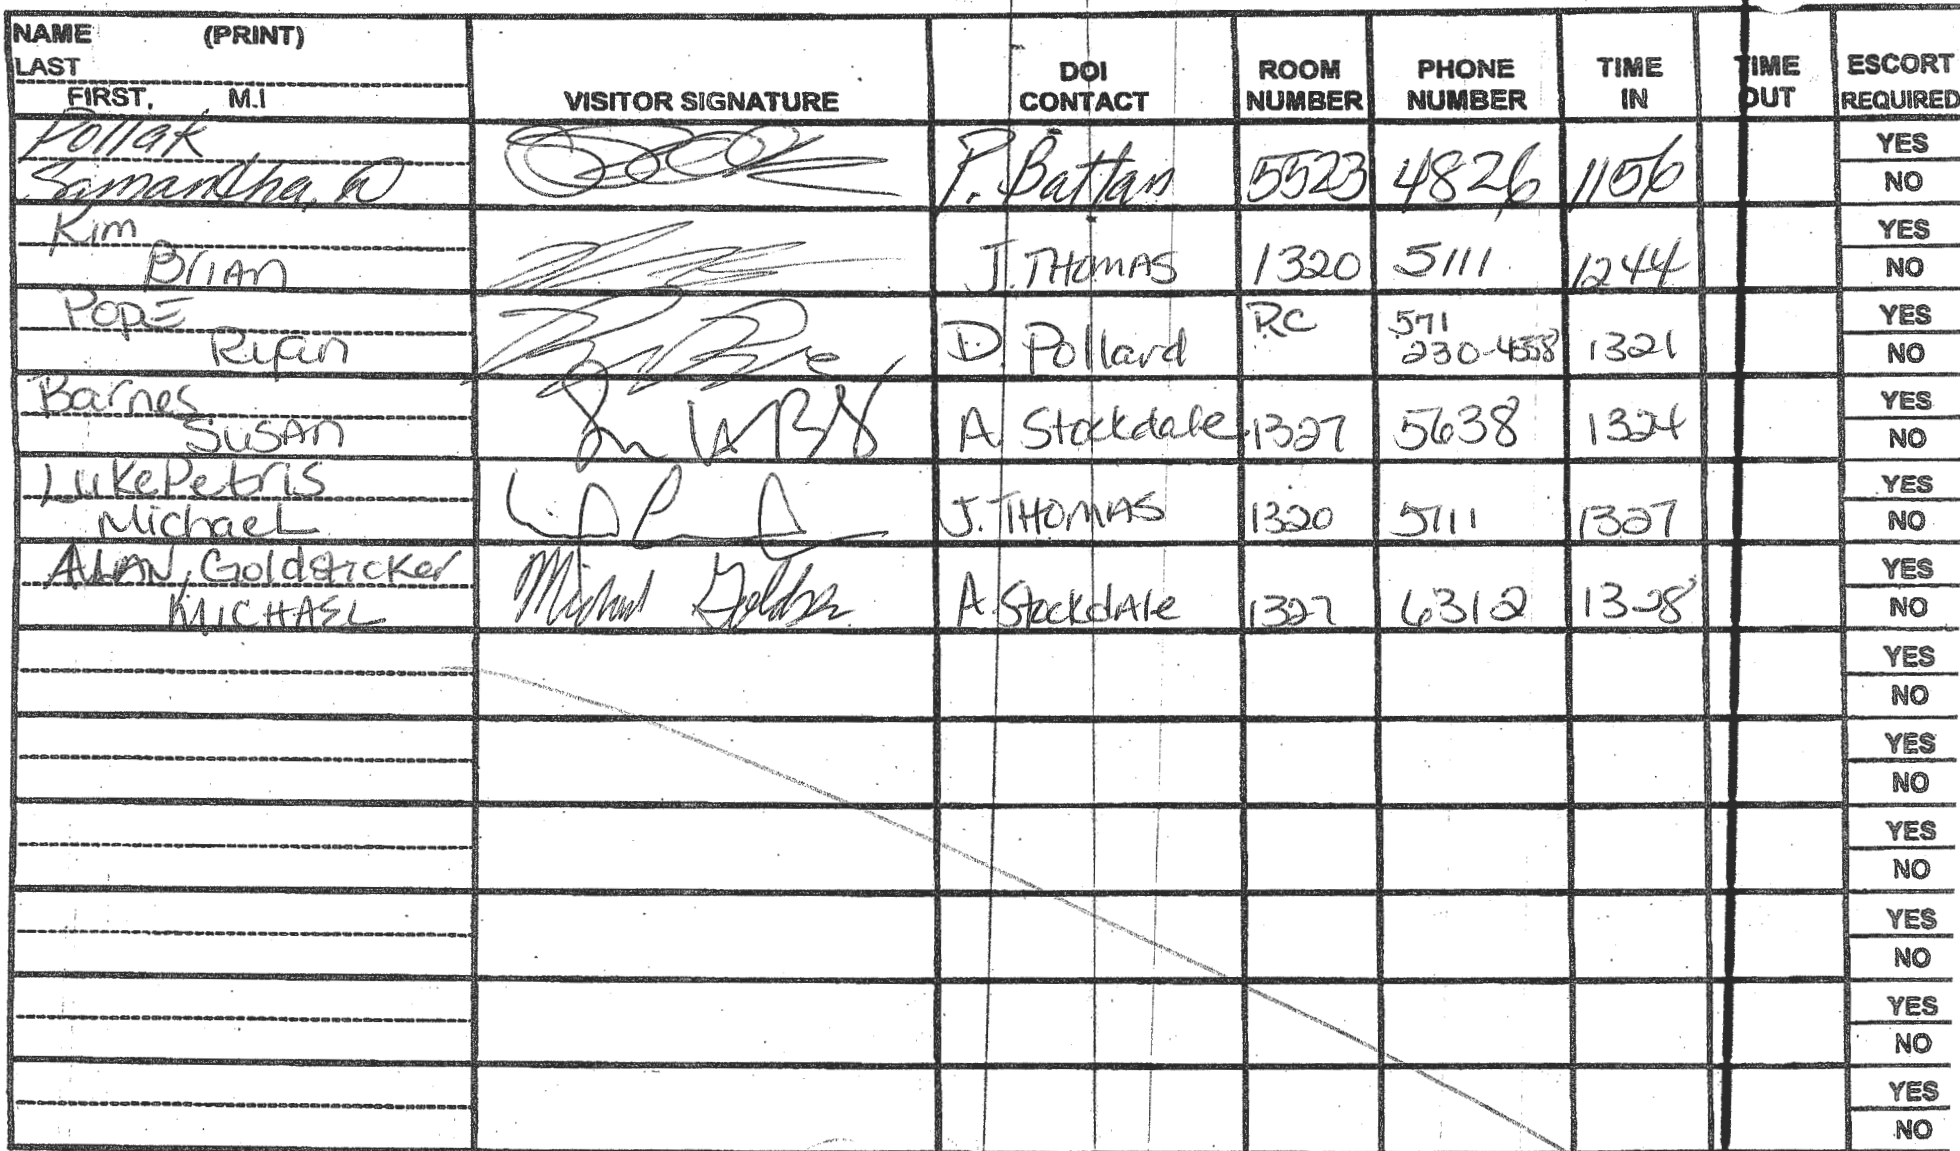 NAME (PRINT)
LAST
FIRST, M.I
VISITOR SIGNATURE
DOI CONTACT
ROOM NUMBER
PHONE NUMBER
TIME IN
TIME OUT
ESCORT REQUIRED
Pollak
Samantha, W P. Battan 5523 4826 1156 YES NO
Kim
BRIAN J. THOMAS 1320 5111 1244 YES NO
POPE
Ryan D. Pollard RC 571 230-4558 1321 YES NO
Barnes
SUSAN A Stockdale 1327 5638 1324 YES NO
LukePetris
Michael J. THOMAS 1320 5111 1327 YES NO
ALAN, Goldsticker
MICHAEL Michael A Stockdale 1327 6312 1328 YES NO
YES
NO
YES
NO
YES
NO
YES
NO
YES
NO
YES
NO